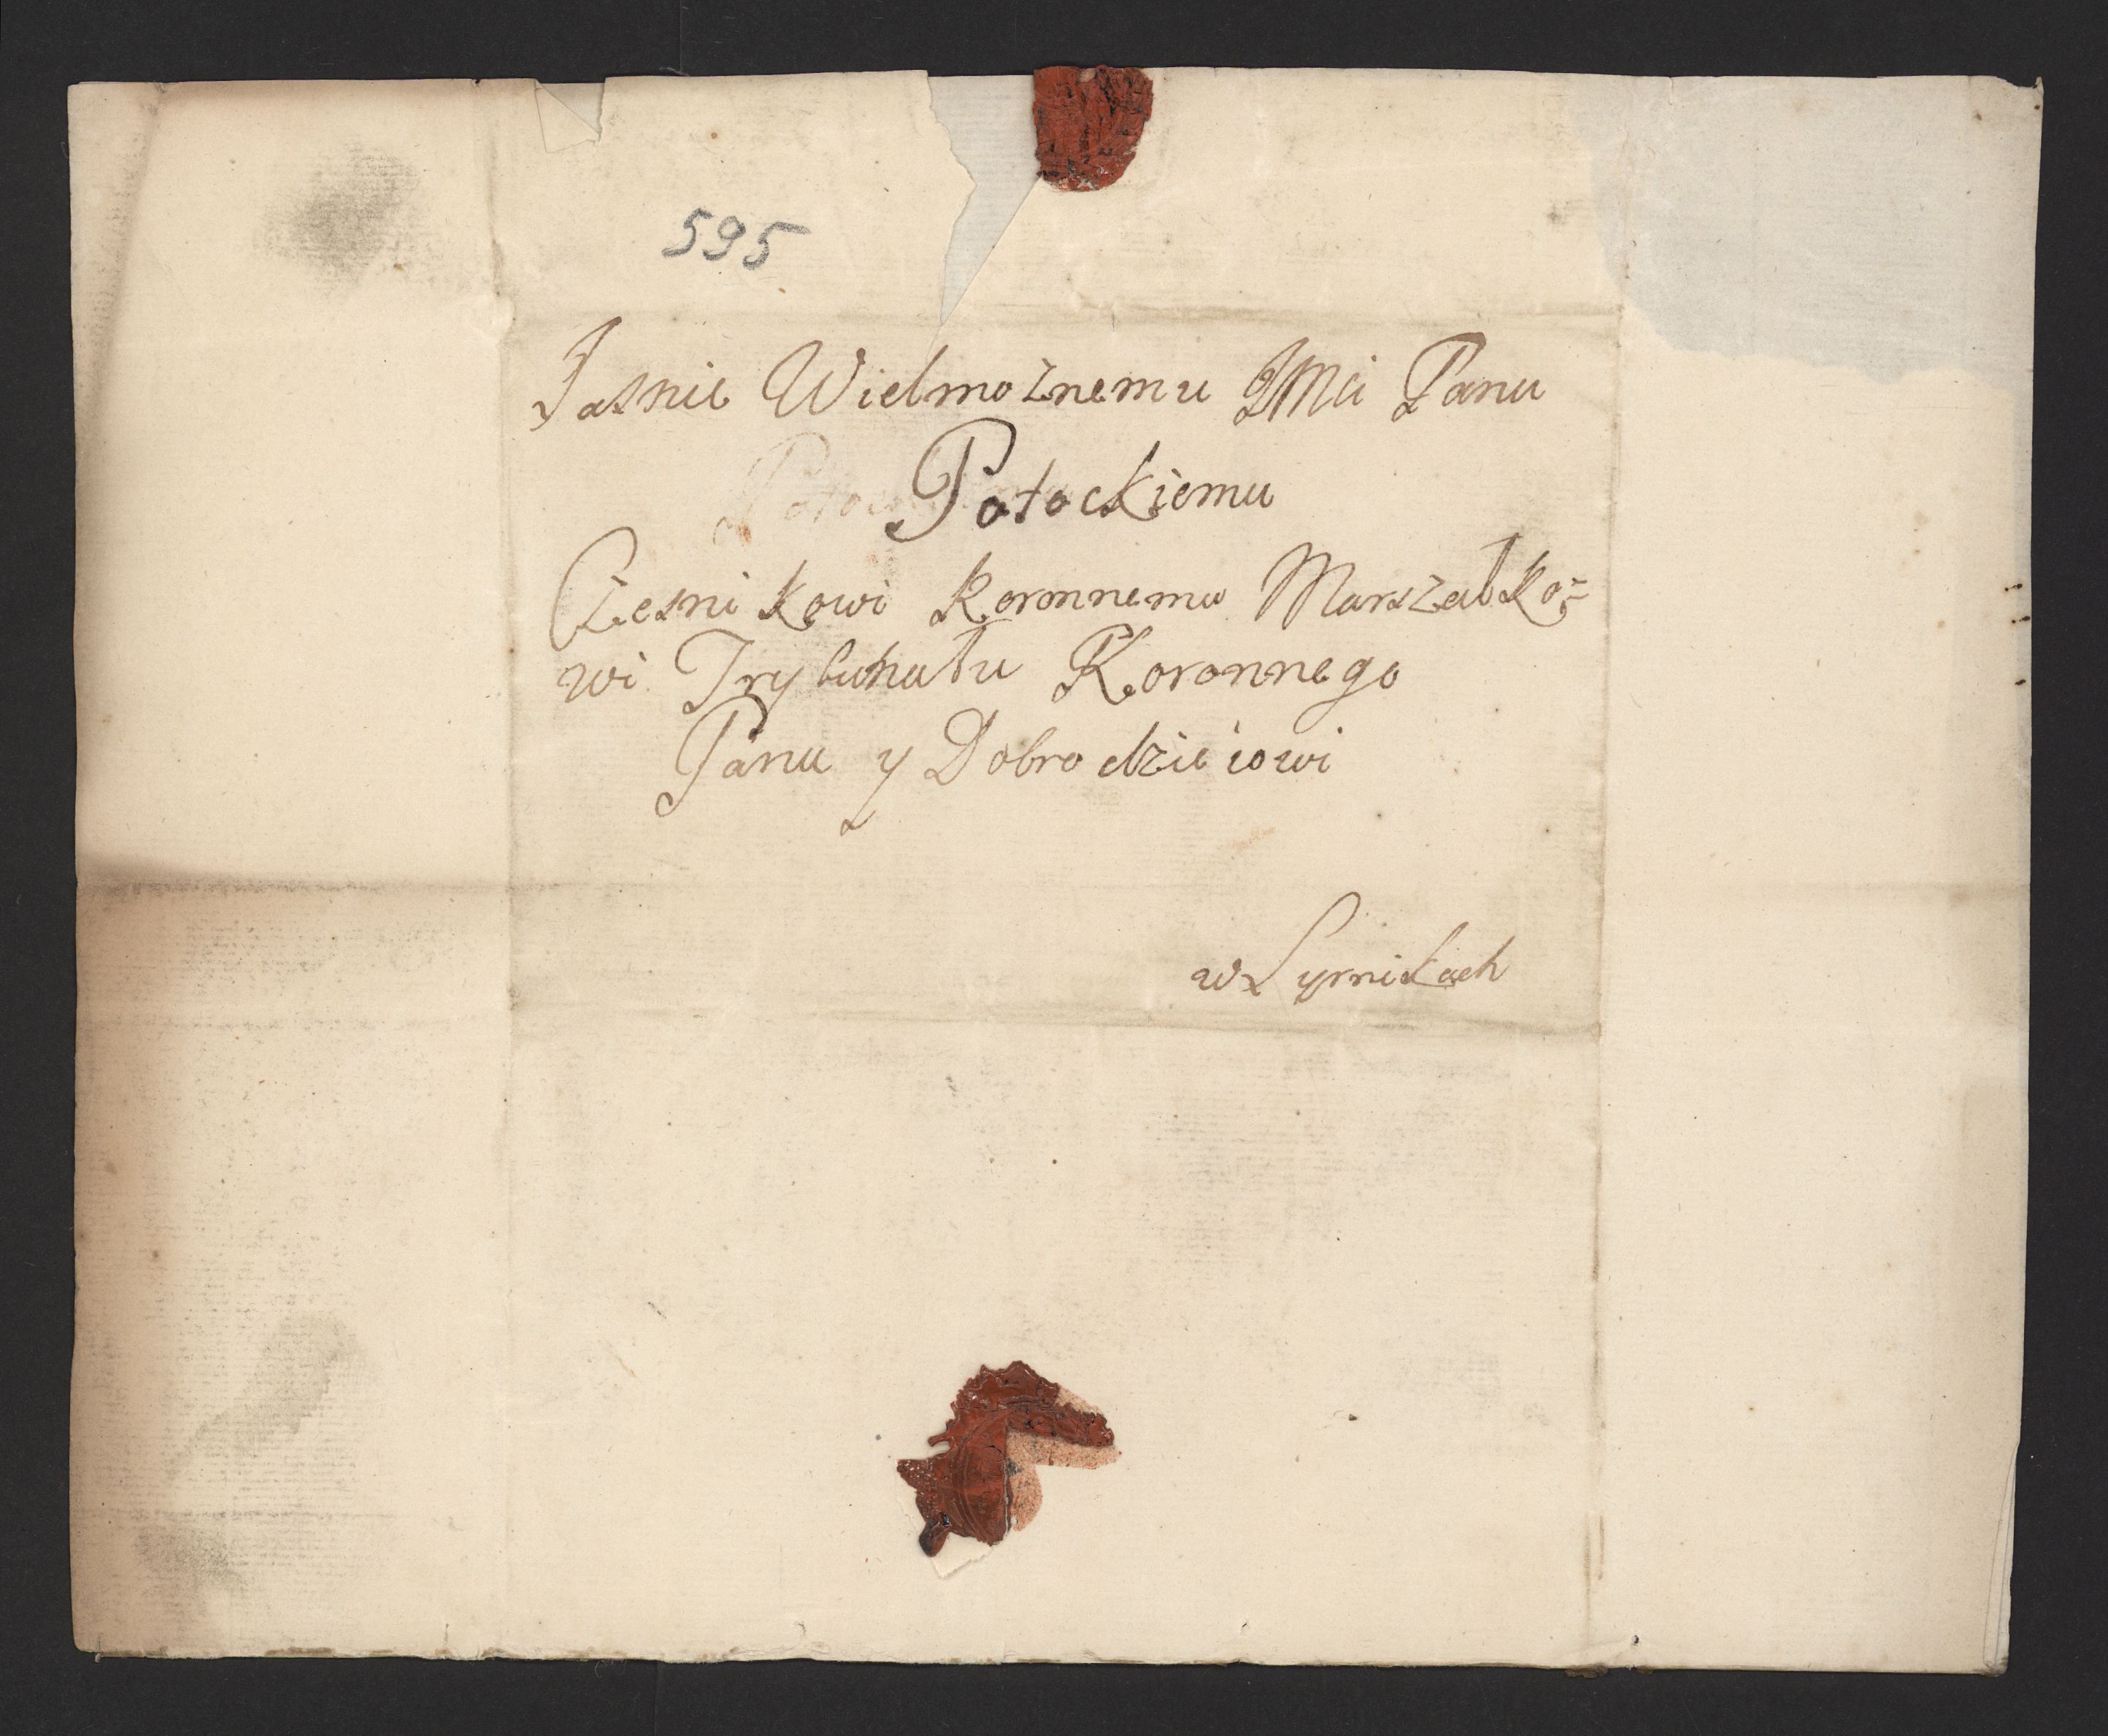 595
Jasnie Wielmożnemu JMci Panu
Potockiemu
Czesnikowi Koronnemu Marszałko=
wi Trybunału Koronnego
Panu y Dobrodzieiowi
w Syrnikach